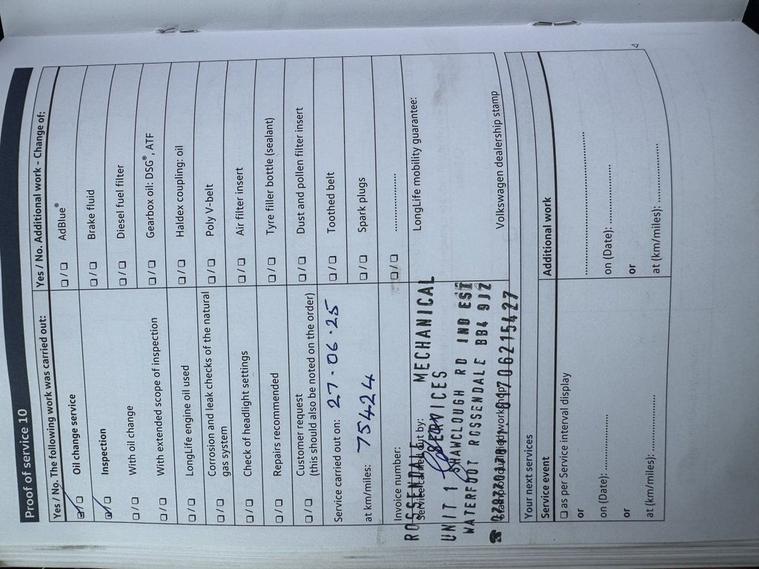 Proof of service 10
Yes / No. The following work was carried out:
Oil change service
Inspection
With oil change
With extended scope of inspection
LongLife engine oil used
Corrosion and leak checks of the natural
gas system
Check of headlight settings
Repairs recommended
Customer request
(this should also be noted on the order)
Service carried out on: 27-06-25
at km/miles: 75424
Invoice number:
ROSSENDALE MECHANICAL
UNIT 1 SERVICES
SHAWCLOUGH RD IND EST
WATERFOOT ROSSENDALE BB4 9JZ
Yes / No. Additional work - Change of:
AdBlue®
Brake fluid
Diesel fuel filter
Gearbox oil: DSG®, ATF
Haldex coupling: oil
Poly V-belt
Air filter insert
Tyre filler bottle (sealant)
Dust and pollen filter insert
Toothed belt
Spark plugs
LongLife mobility guarantee:
Volkswagen dealership stamp
Your next services
Service event
as per Service interval display
or
on (Date):
or
at (km/miles):
Additional work
on (Date):
or
at (km/miles):